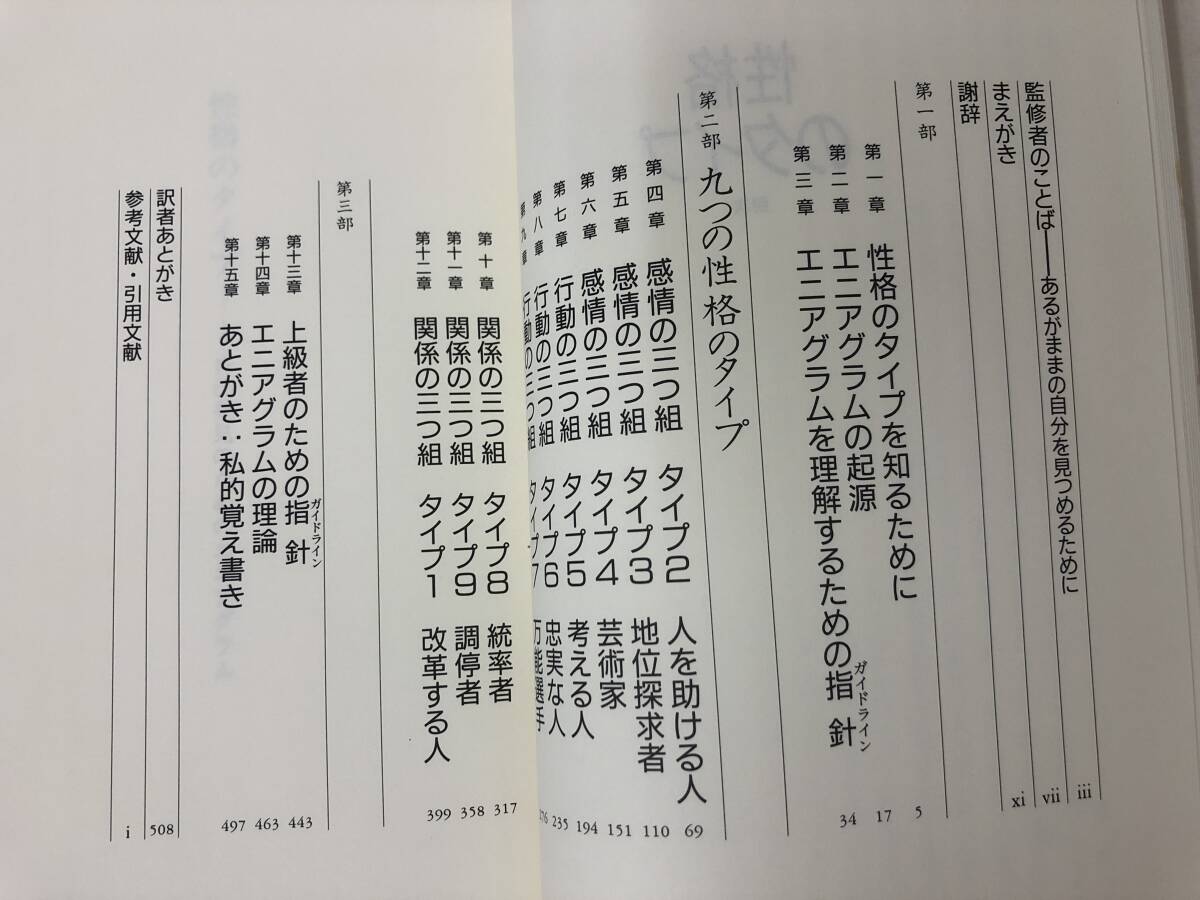 監修者のことば――あるがままの自分を見つめるために iii
まえがき vii
謝辞 xi
第一部
第一章 性格のタイプを知るために 5
第二章 エニアグラムの起源 17
第三章 エニアグラムを理解するための指針 34
ガイドライン
第二部 九つの性格のタイプ
第四章 感情の三つ組 タイプ2 人を助ける人 69
第五章 感情の三つ組 タイプ3 地位探求者 110
第六章 感情の三つ組 タイプ4 芸術家 151
第七章 行動の三つ組 タイプ5 考える人 194
第八章 行動の三つ組 タイプ6 忠実な人 235
第九章 行動の三つ組 タイプ7 万能選手 276
第十章 関係の三つ組 タイプ8 統率者 317
第十一章 関係の三つ組 タイプ9 調停者 358
第十二章 関係の三つ組 タイプ1 改革する人 399
第三部
第十三章 上級者のための指針 443
ガイドライン
第十四章 エニアグラムの理論 463
第十五章 あとがき：私的覚え書き 497
訳者あとがき 508
参考文献・引用文献 i
性格
のタイプ